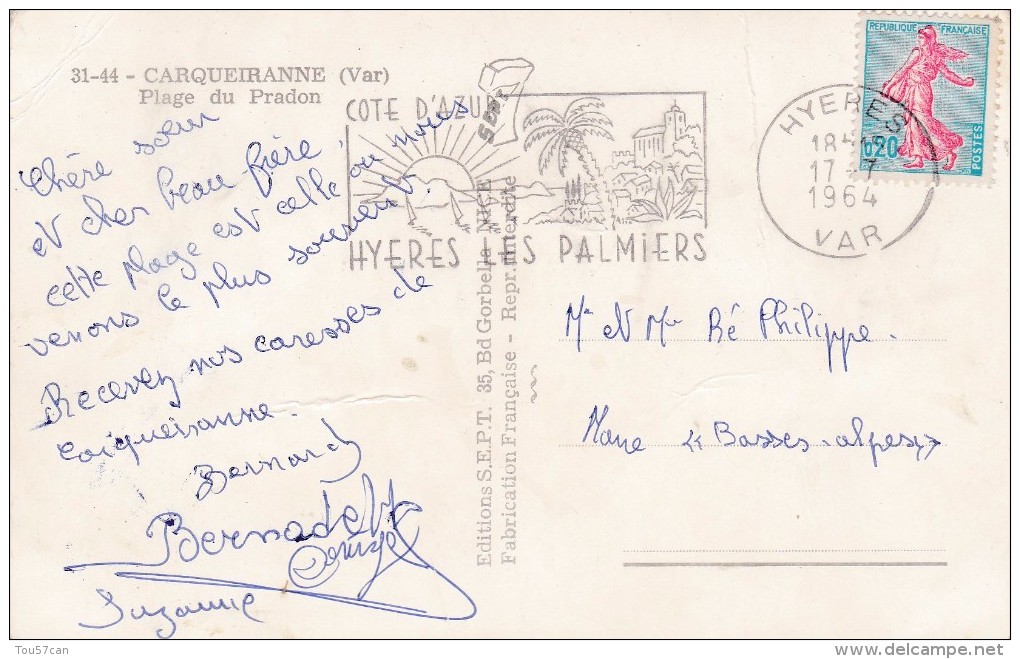 31-44 - CARQUEIRANNE (Var)
Plage du Pradon
Chère sœur
et cher beau frère,
cette plage est celle ou nous
venons le plus souvent.
Recevez nos caresses de
Caiqueiranne.
Bernard
Bernadette
Suzanne
Editions S.E.P.T. 35, Bd Gorbella NICE
Fabrication Française - Repr. Interdite
COTE D'AZUR
HYERES LES PALMIERS
HYERES
18H
17-7
1964
VAR
REPUBLIQUE FRANÇAISE
0,20
POSTES
Mr et Mme Ré Philippe.
Mane "Basses-alpes"
Tou57can
www.delcampe.net